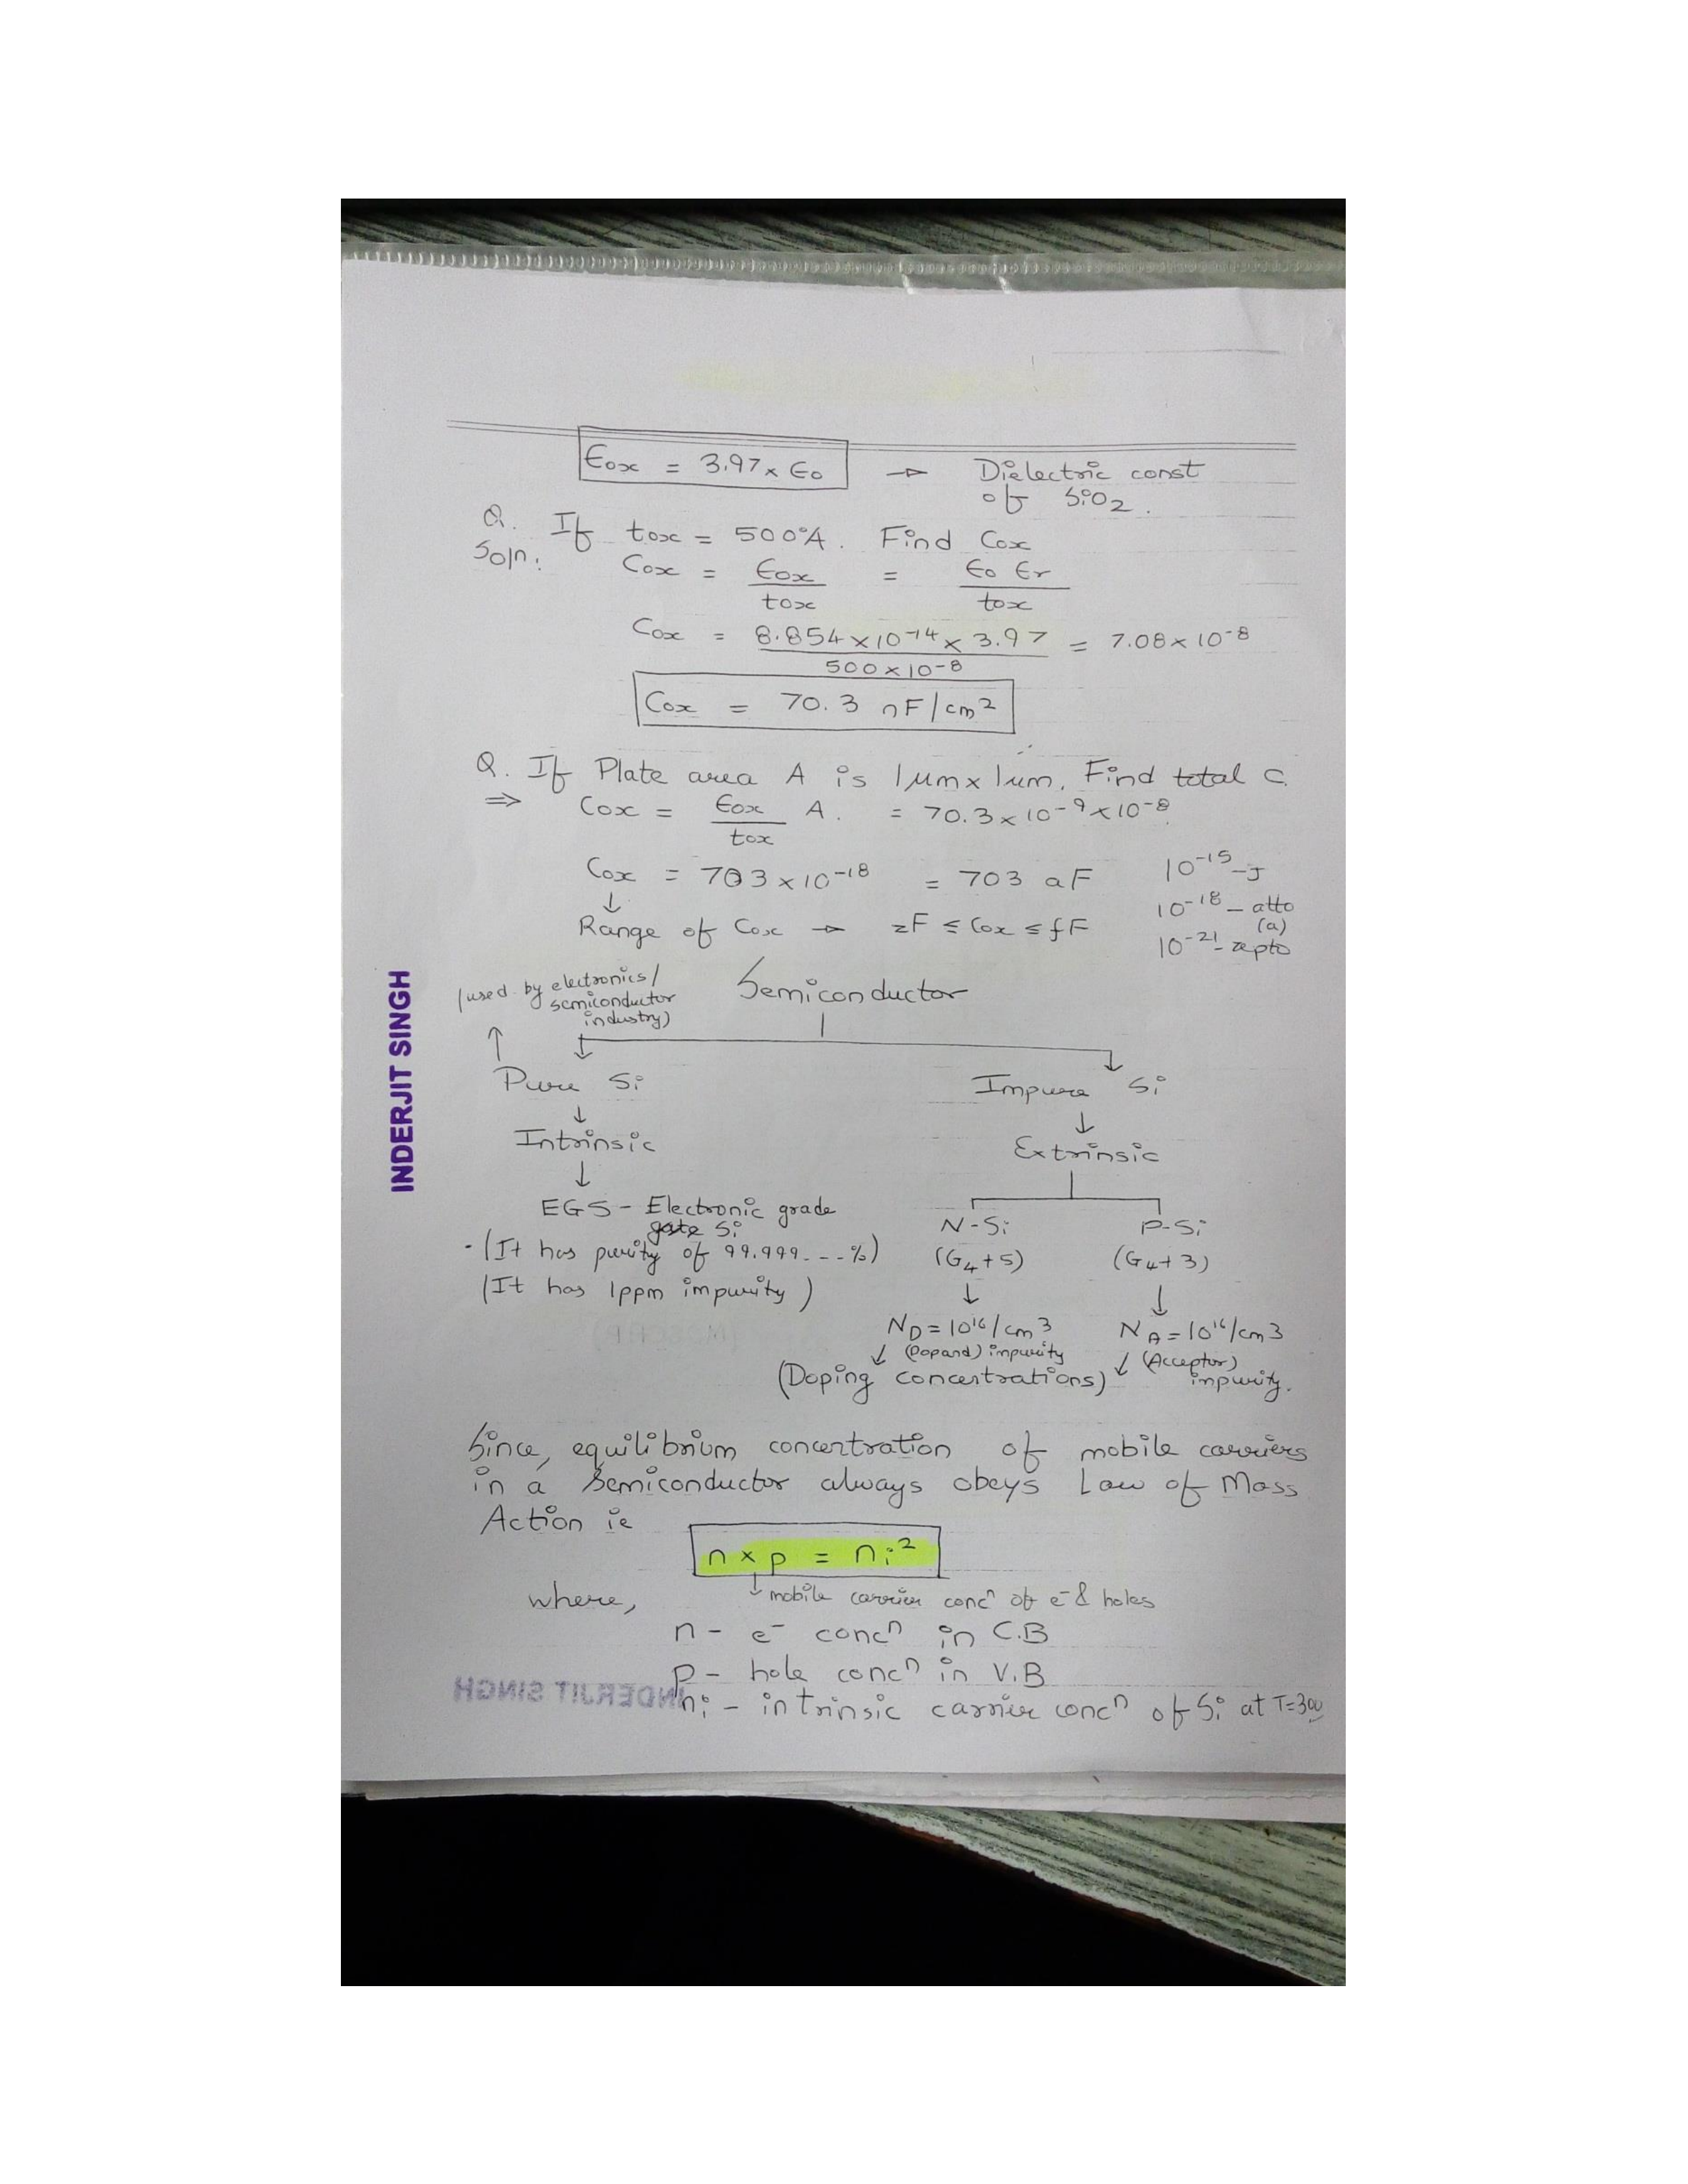 Єox = 3.97 x Єo → Dielectric const
of SiO2.
Q. If tox = 500°A. Find Cox
Soln: Cox = Єox / tox = Єo Єr / tox
Cox = 8.854 x 10-14 x 3.97 / 500 x 10-8 = 7.08 x 10-8
Cox = 70.3 nF/cm2
Q. If Plate area A is 1μm x 1μm. Find total C
⇒ Cox = Єox / tox A. = 70.3 x 10-9 x 10-8
Cox = 703 x 10-18 = 703 aF 10-15 - f
↓ 10-18 - atto
(a)
Range of Cox → zF ≤ Cox ≤ fF 10-21 - zepto
Semiconductor
(used by electronics/
semiconductor
industry)
Pure Si
↓
Intrinsic
↓
EGS - Electronic grade
Si
(It has purity of 99.999---%)
(It has 1ppm impurity)
Impure Si
↓
Extrinsic
N-Si P-Si
(G4+5) (G4+3)
↓ ↓
ND = 1016/cm3 NA = 1016/cm3
↓ (Dopand) impurity ↓ (Acceptor)
impurity.
(Doping concentrations)
Since, equilibrium concentration of mobile carriers
in a Semiconductor always obeys Law of Mass
Action ie
n x p = ni2
where, ↓ mobile carrier concn of e- & holes
n - e- concn in C.B
p - hole concn in V.B
ni - intrinsic carrier concn of Si at T=300
INDERJIT SINGH
INDERJIT SINGH